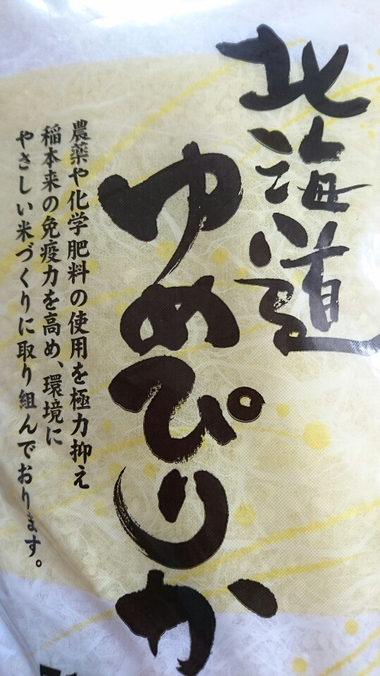 北海道
ゆめぴりか
農薬や化学肥料の使用を極力抑え
稲本来の免疫力を高め、環境に
やさしい米づくりに取り組んでおります。